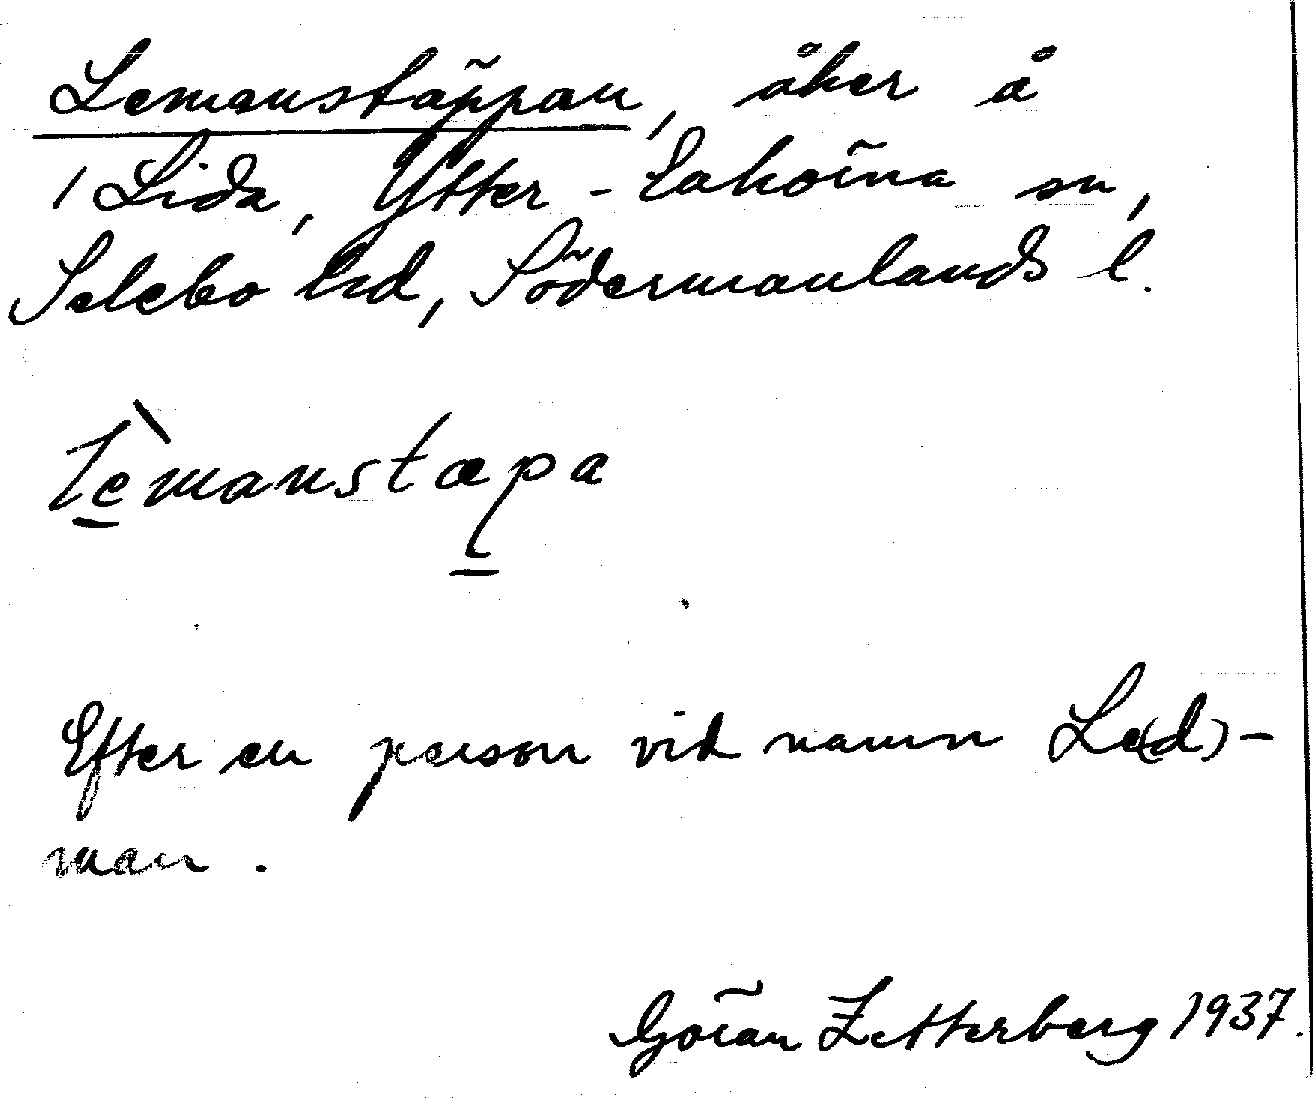 Lemanstäppan, åker å
1 Lida, Ytter-Enhörna sn,
Selebo hd, Södermanlands l.
lèmanstæpa
Efter en person vid namn Le(d)-
man.
Göran Zetterberg 1937.